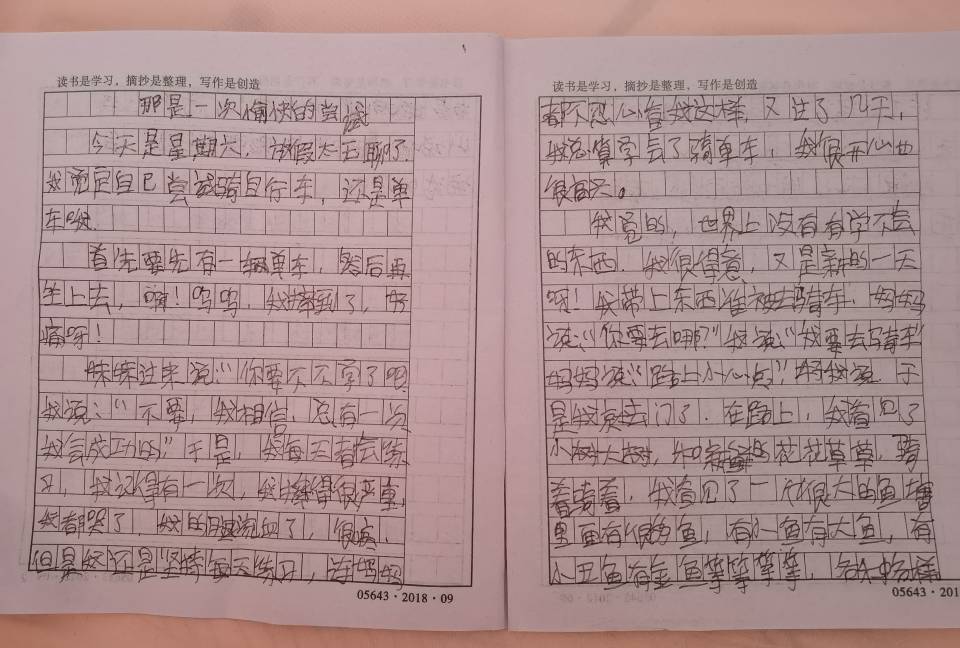 读书是学习，摘抄是整理，写作是创造
那是一次愉快的尝试
今天是星期六，放假太无聊了.
我决定自己尝试骑自行车，还是单
车呦.
首先要先有一辆单车，然后再
坐上去，嘀！呜呜，我摔到了，好
痛呀！
妹妹过来说：“你要不不学了吧
我说：“不要，我相信，总有一次
我会成功的”于是，我每天都会练
习，我记得有一次，我摔得很严重
我都哭了.我的腿流血了，很疼，
但是我还是坚持每天练习，连妈妈
05643·2018·09
读书是学习，摘抄是整理，写作是创造
都不忍心看我这样，又过了几天，
我总算学会了骑单车，我很开心也
很高兴。
我觉的，世界上没有有学不会
的东西.我很得意，又是新的一天
呀！我带上东西准被去骑车，妈妈
说：“你要去哪？”我说：“我要去骑车”
妈妈说：“路上小心点”，妈我说 于
是我就去门了.在路上，我看见了
小树大树，和 的花花草草，骑
着骑着，我看见了一个很大的鱼塘
里面有很多鱼，有小鱼有大鱼，有
小丑鱼有金鱼等等等等，各
05643·201